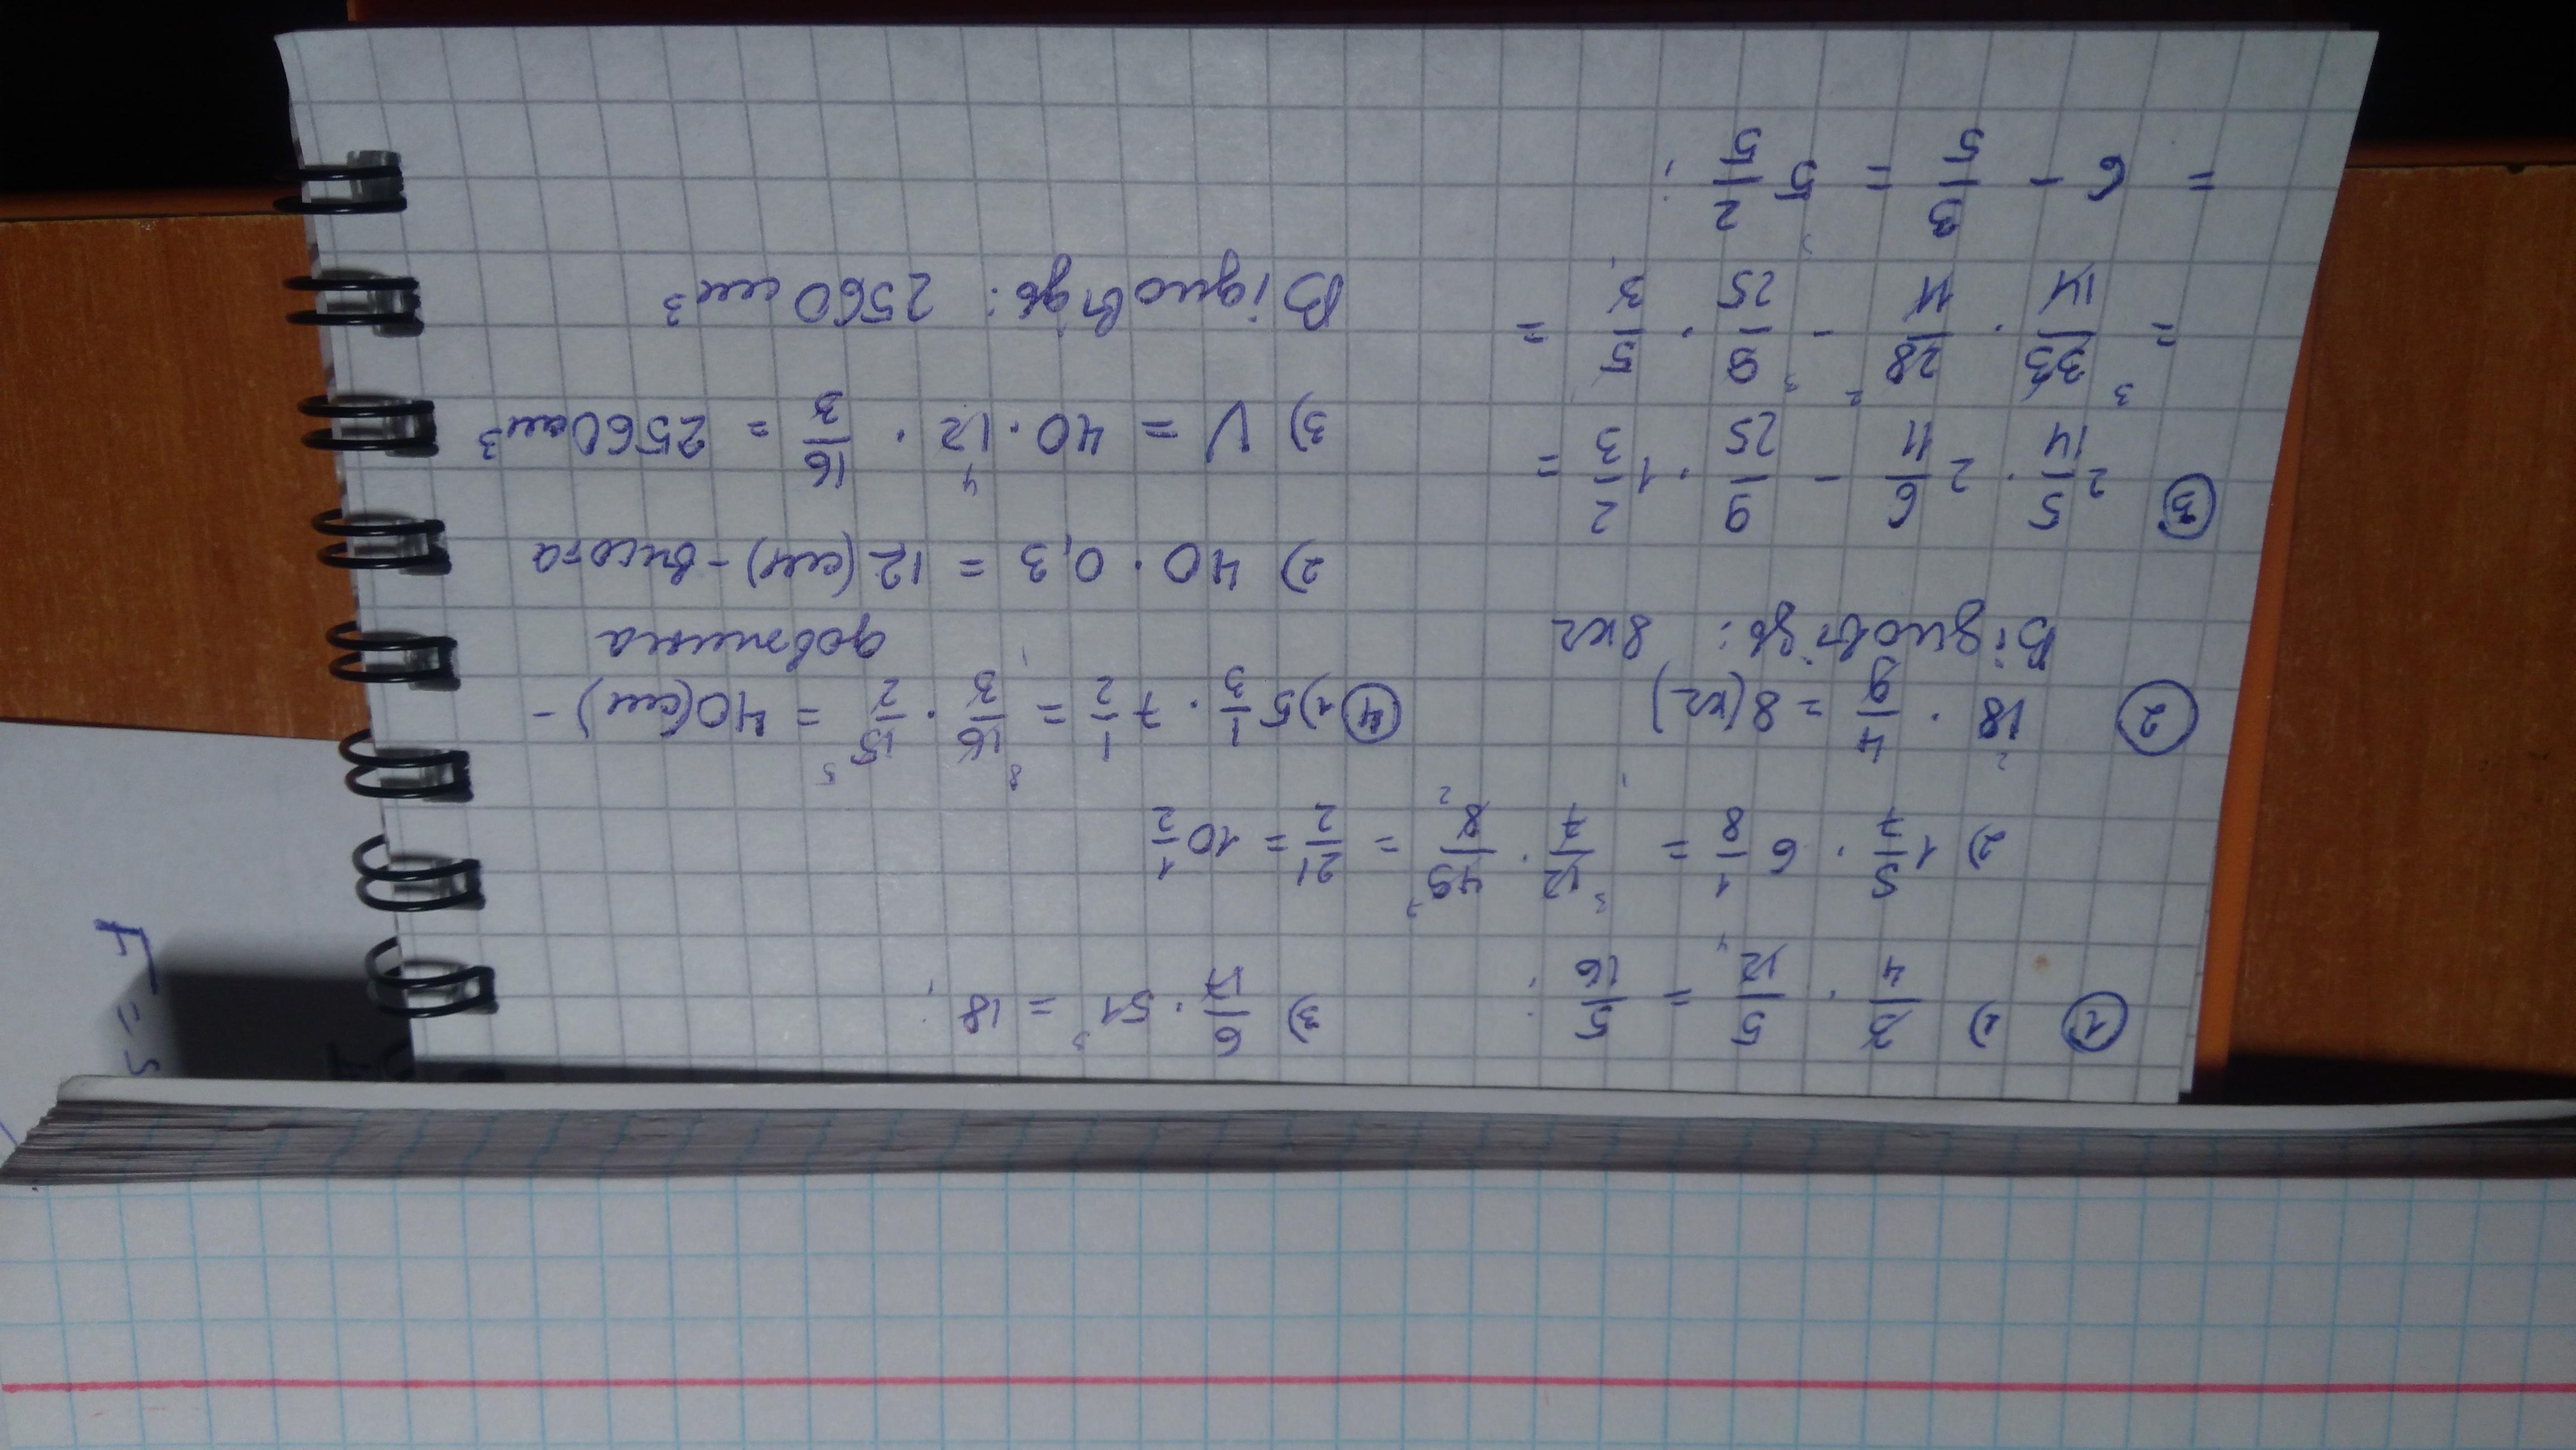 ① 1) 3/4 · 5/12 = 5/16 ;
2) 1 5/7 · 6 1/8 = 12/7 · 49/8 = 21/2 = 10 1/2
3) 6/17 · 51 = 18 ;
② 18 · 4/9 = 8 (кг)
Відповідь: 8 кг
③ 2 5/14 · 2 6/11 - 9/25 · 1 2/3 =
= 33/14 · 28/11 - 9/25 · 5/3 =
= 6 - 3/5 = 5 2/5 ;
④ 1) 5 1/3 · 7 1/2 = 16/3 · 15/2 = 40 (см) -
довжина
2) 40 · 0,3 = 12 (см) - висота
3) V = 40 · 12 · 16/3 = 2560 см³
Відповідь: 2560 см³